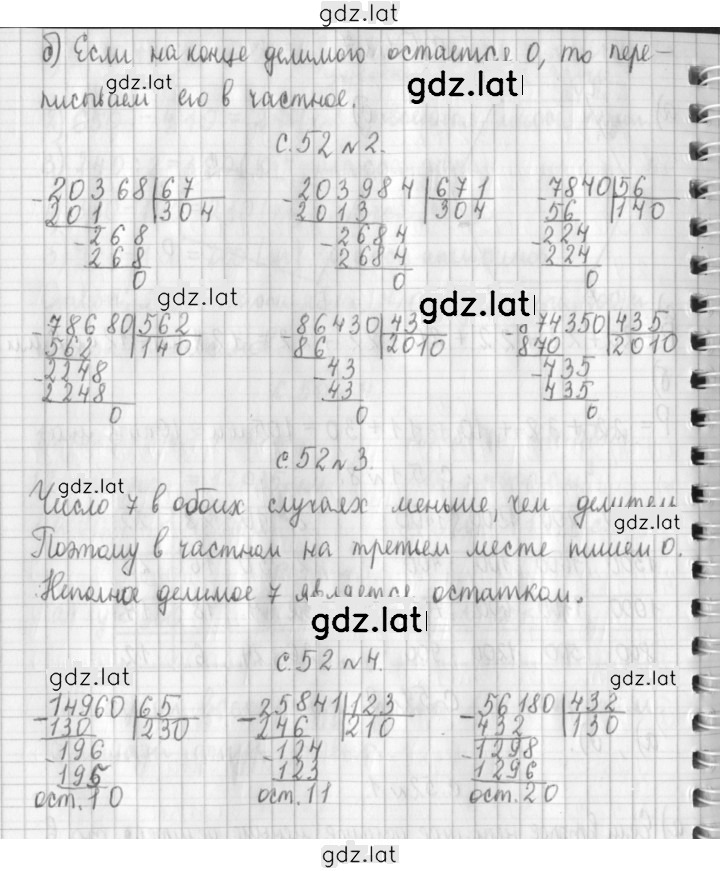 gdz.lat
б) Если на конце делимого остается 0, то пере-
gdz.lat gdz.lat
писываем его в частное.
с. 52 № 2.
- 20368 | 67 - 203984 | 671 - 7840 | 56
201 | 304 2013 | 304 56 | 140
- 268 - 2684 - 224
268 2684 224
0 0 0
gdz.lat gdz.lat
- 78680 | 562 - 86430 | 43 - 874350 | 435
562 | 140 86 | 2010 870 | 2010
- 2248 - 43 - 435
2248 43 435
0 0 0
с. 52 № 3.
gdz.lat
Число 7 в обоих случаях меньше, чем делител
gdz.lat
Поэтому в частном на третьем месте пишем 0.
Неполное делимое 7 является остатком.
gdz.lat
с. 52 № 4.
gdz.lat gdz.lat
- 14960 | 65 - 25841 | 123 - 56180 | 432
130 | 230 246 | 210 432 | 130
- 196 - 124 - 1298
195 123 1296
ост. 10 ост. 11 ост. 20
gdz.lat